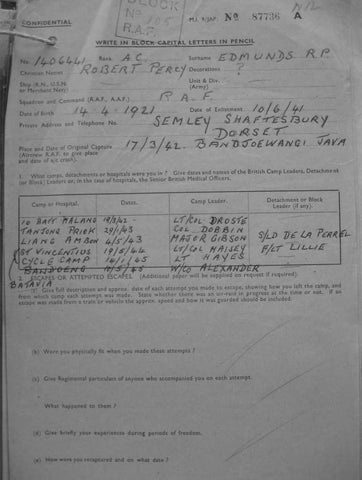 CONFIDENTIAL
BLOCK
No 105
R.A.F.
M.I. 9/JAP. No 87736 A
WRITE IN BLOCK CAPITAL LETTERS IN PENCIL
No. 1406441 Rank A.C. Surname EDMUNDS R.P.
Christian Names ROBERT PERCY Decorations ?
Ship (R.N., U.S.N. or Merchant Navy) Unit & Div. (Army)
Squadron and Command (R.A.F., A.A.F.) R.A.F.
Date of Birth 14 4 1921 Date of Enlistment 10/6/41
Private Address and Telephone No. SEMLEY SHAFTESBURY
DORSET
Place and Date of Original Capture 17/3/42. BANDJOEWANGI JAVA
(Aircrew R.A.F. to give place
and date of a/c crash).
1. What camps, detachments or hospitals were you in ? Give dates and names of the British Camp Leaders, Detachment
(or Block) Leaders or, in the case of hospitals, the Senior British Medical Officers.
Camp or Hospital. Dates. Camp Leader. Detachment or Block Leader (if any).
MALANG LT/COL DROSTE
TANJONG PRIOK 29/1/43 COL DOBBIN
LIANG AMBON 4/5/43 MAJER GIBSON S/LD DE LA PERREL
ST VINCENTIUS 19/5/44 LT/COL F/LT LILLIE
CYCLE CAMP 14/1/45 LT HAYES
BANDOENG 10/5/45 W/CO ALEXANDER
BATAVIA
2. ESCAPES OR ATTEMPTED ESCAPES. (Additional paper will be supplied on request if required).
Give full description and approx. date of each attempt to escape, showing how you left the camp, and
from which camp each attempt was made. State whether there was an air-raid in progress at the time or not. If an
escape was made from a train or vehicle the approx. speed and how it was guarded should be included.
(b) Were you physically fit when you made these attempts ?
(c) Give Regimental particulars of anyone who accompanied you on each attempt.
What happened to them ?
(d) Give briefly your experiences during periods of freedom.
(e) How were you recaptured and on what date ?